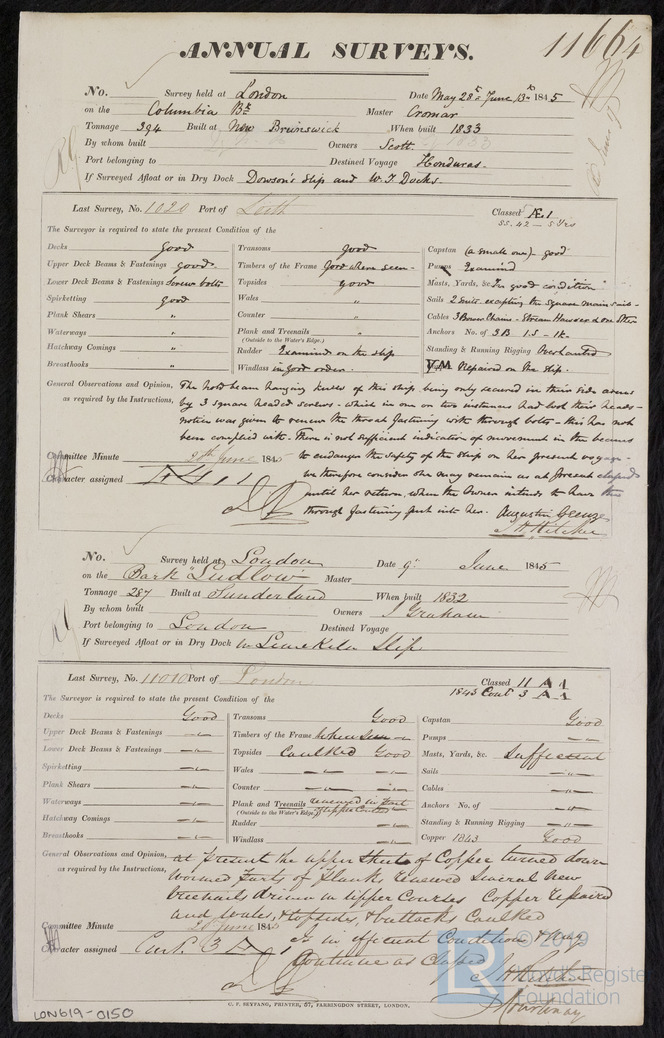 11664
ANNUAL SURVEYS.
No. Survey held at London Date May 28th & June 13th 1845
on the Columbia Bk Master Cromar
Tonnage 394 Built at New Brunswick When built 1833
By whom built Owners Scott
Port belonging to Destined Voyage Honduras.
If Surveyed Afloat or in Dry Dock Dowson's Slip and W. I. Docks.
Last Survey, No. 1020 Port of Leith Classed Æ 1
SS. 42 – 5 Yrs
The Surveyor is required to state the present Condition of the
Decks good
Upper Deck Beams & Fastenings good.
Lower Deck Beams & Fastenings Screw bolts
Spirketting good
Plank Shears "
Waterways "
Hatchway Comings "
Breasthooks "
Transoms good
Timbers of the Frame Good where seen
Topsides good
Wales "
Counter "
Plank and Treenails "
(Outside to the Water's Edge.)
Rudder Examined on the slip
Windlass in good order.
Capstan (a small one) good
Pumps Examined
Masts, Yards, &c. In good condition
Sails 2 Suits excepting the square main sail
Cables 3 Bower Chains - Stream Hawser & one
Anchors No. of 3 B. 1.S - 1K.
Standing & Running Rigging Overhauled
Y.M. Repaired on the slip.
General Observations and Opinion,
as required by the Instructions,
The hold beam hanging knees of this ship being only secured in their side arms
by 3 square headed screws - which in one or two instances had lost their heads -
notice was given to renew the throat fastening with through bolts - this has not
been complied with. There is not sufficient indication of movement in the beams
to endanger the safety of the ship on her present voyage -
we therefore consider she may remain as at present classed
until her return, when the Owner intends to have the
through fastening put into her. Augustin George
J H Ritchie
Committee Minute 20th June 1845
Character assigned Æ 1
No. Survey held at London Date 9th June 1845
on the Bark "Ludlow" Master
Tonnage 287 Built at Sunderland When built 1832
By whom built Owners J Graham
Port belonging to London Destined Voyage
If Surveyed Afloat or in Dry Dock in Limekiln Slip
Last Survey, No. 11010 Port of London Classed 11 A 1
1843 Cont 3 A 1
The Surveyor is required to state the present Condition of the
Decks Good
Upper Deck Beams & Fastenings "
Lower Deck Beams & Fastenings "
Spirketting "
Plank Shears "
Waterways "
Hatchway Comings "
Breasthooks "
Transoms Good
Timbers of the Frame where seen
Topsides Caulked Good
Wales " "
Counter " "
Plank and Treenails renewed in part
(Outside to the Water's Edge.) & upper Courses
Rudder "
Windlass "
Capstan Good
Pumps "
Masts, Yards, &c. Sufficient
Sails "
Cables "
Anchors No. of "
Standing & Running Rigging "
Copper 1843 Good
General Observations and Opinion,
as required by the Instructions,
at present the upper sheets of Copper turned down
wormed parts of planks renewed several new
treenails driven in upper Courses Copper repaired
and wales, & topsides, & buttocks Caulked
Is in efficient Condition & may
Continue as classed J H Ritchie
J Courtenay
Committee Minute 20 June 1845
Character assigned Cont. 3 A 1
C. F. SEYFANG, PRINTER, 57, FARRINGDON STREET, LONDON.
LON619-0150
© 2019
LR
Lloyd's Register
Foundation